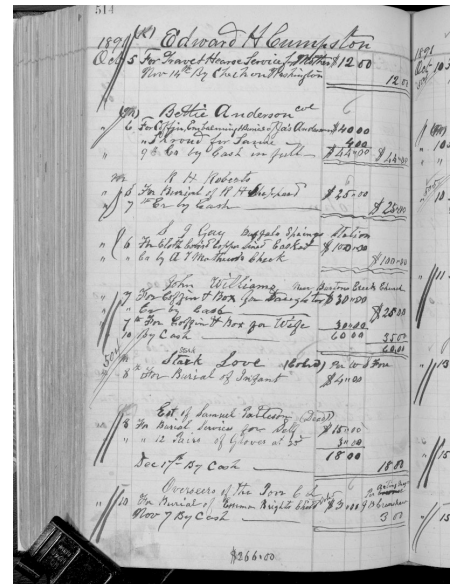 514
1891 (X) Edward H Cumpston
Oct 5 For Travel Hearse Service for Mother $12.00
Nov 14th By Check on Washington 12.00
Bettie Anderson col
" 6 For Coffin, Embalming Burial of Anderson $40.00
" Shroud for Same 4.00
9 Cr by Cash in full $44.00 $44.00
R H Roberts
" 6 For Burial of R H $25.00
" 7 Cr by Cash $25.00
S J Gay Buffalo Springs Station
" 6 For Cloth Covered Copper Lined Casket $100.00
" Cr by A T Check $100.00
John Williams near Church
" 7 For Coffin & Box for Daughter $30.00
" Cr by Cash $25.00
7th For Coffin & Box for Wife 30.00
10 By Cash 60.00 35.00
60.00
Stark Love (Cold) Per W S
8th For Burial of Infant $4.00
Est. of Samuel Patteson (Decd)
" 8 For Burial Service for Self $15.00
" " 12 Pairs of Gloves at 25 3.00
18.00
Dec 17th By Cash 18.00
Overseers of the Poor
" 10 For Burial of Emma Brights Child $3.00
Nov 7 By Cash 3.00
$266.00